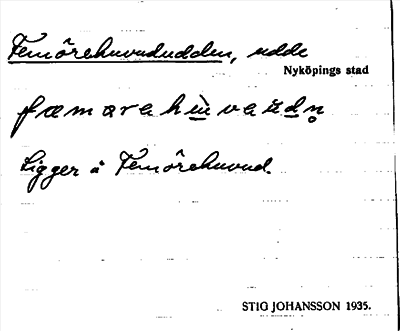 Femörehuvududden, udde
Nyköpings stad
Ligger å Femörehuvud.
STIG JOHANSSON 1935.